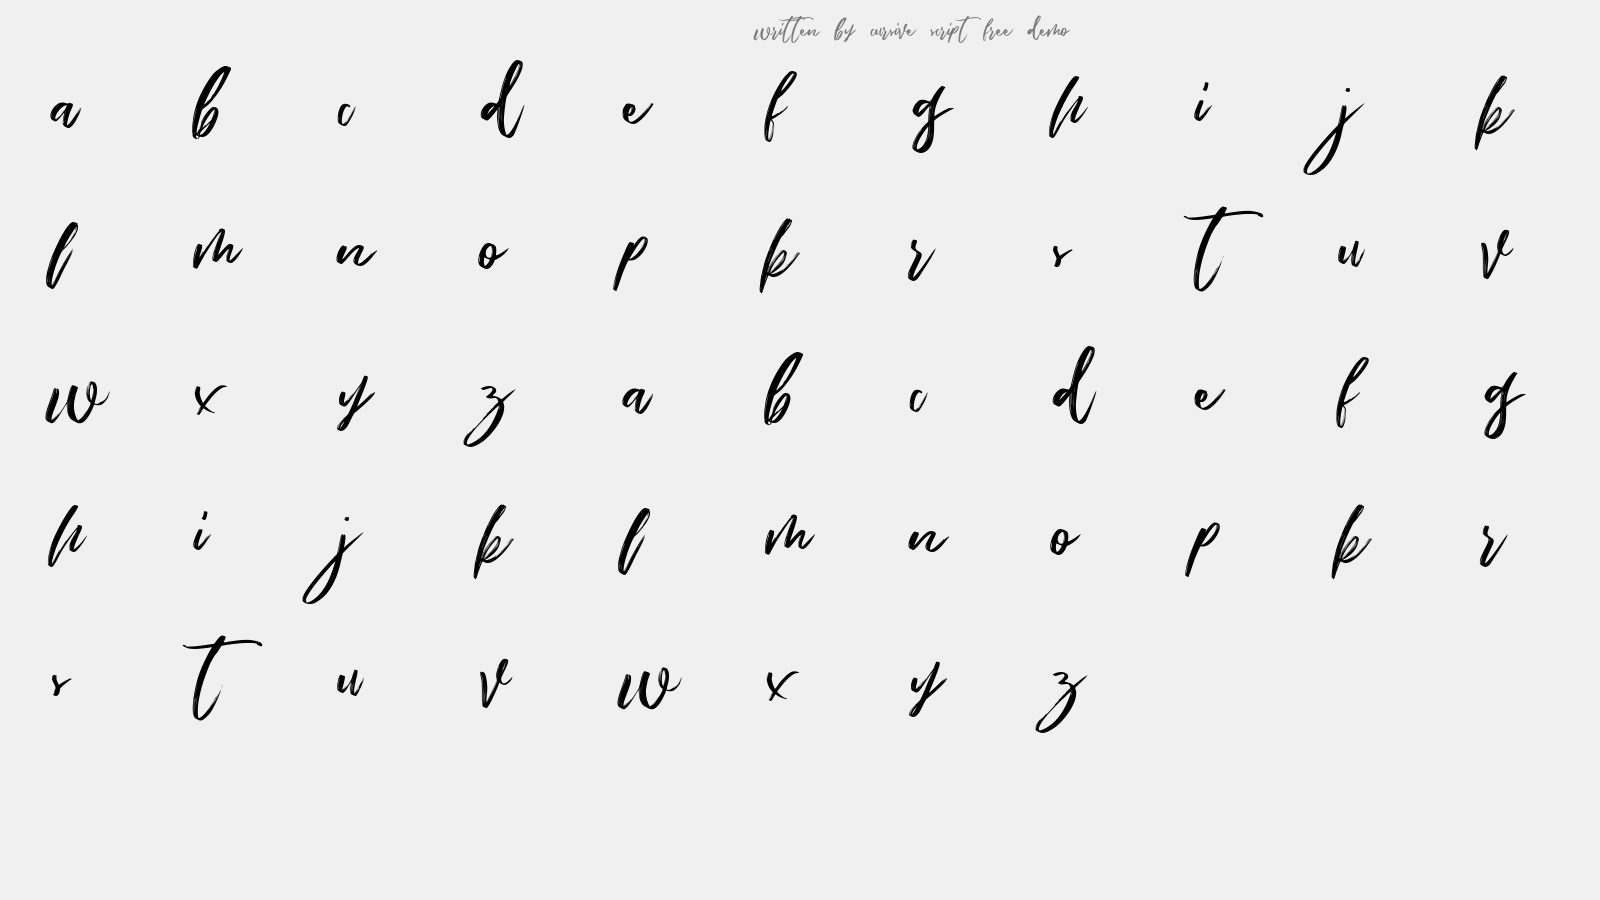 written by cursive script free demo
a b c d e f g h i j k
l m n o p k r s t u v
w x y z a b c d e f g
h i j k l m n o p k r
s t u v w x y z